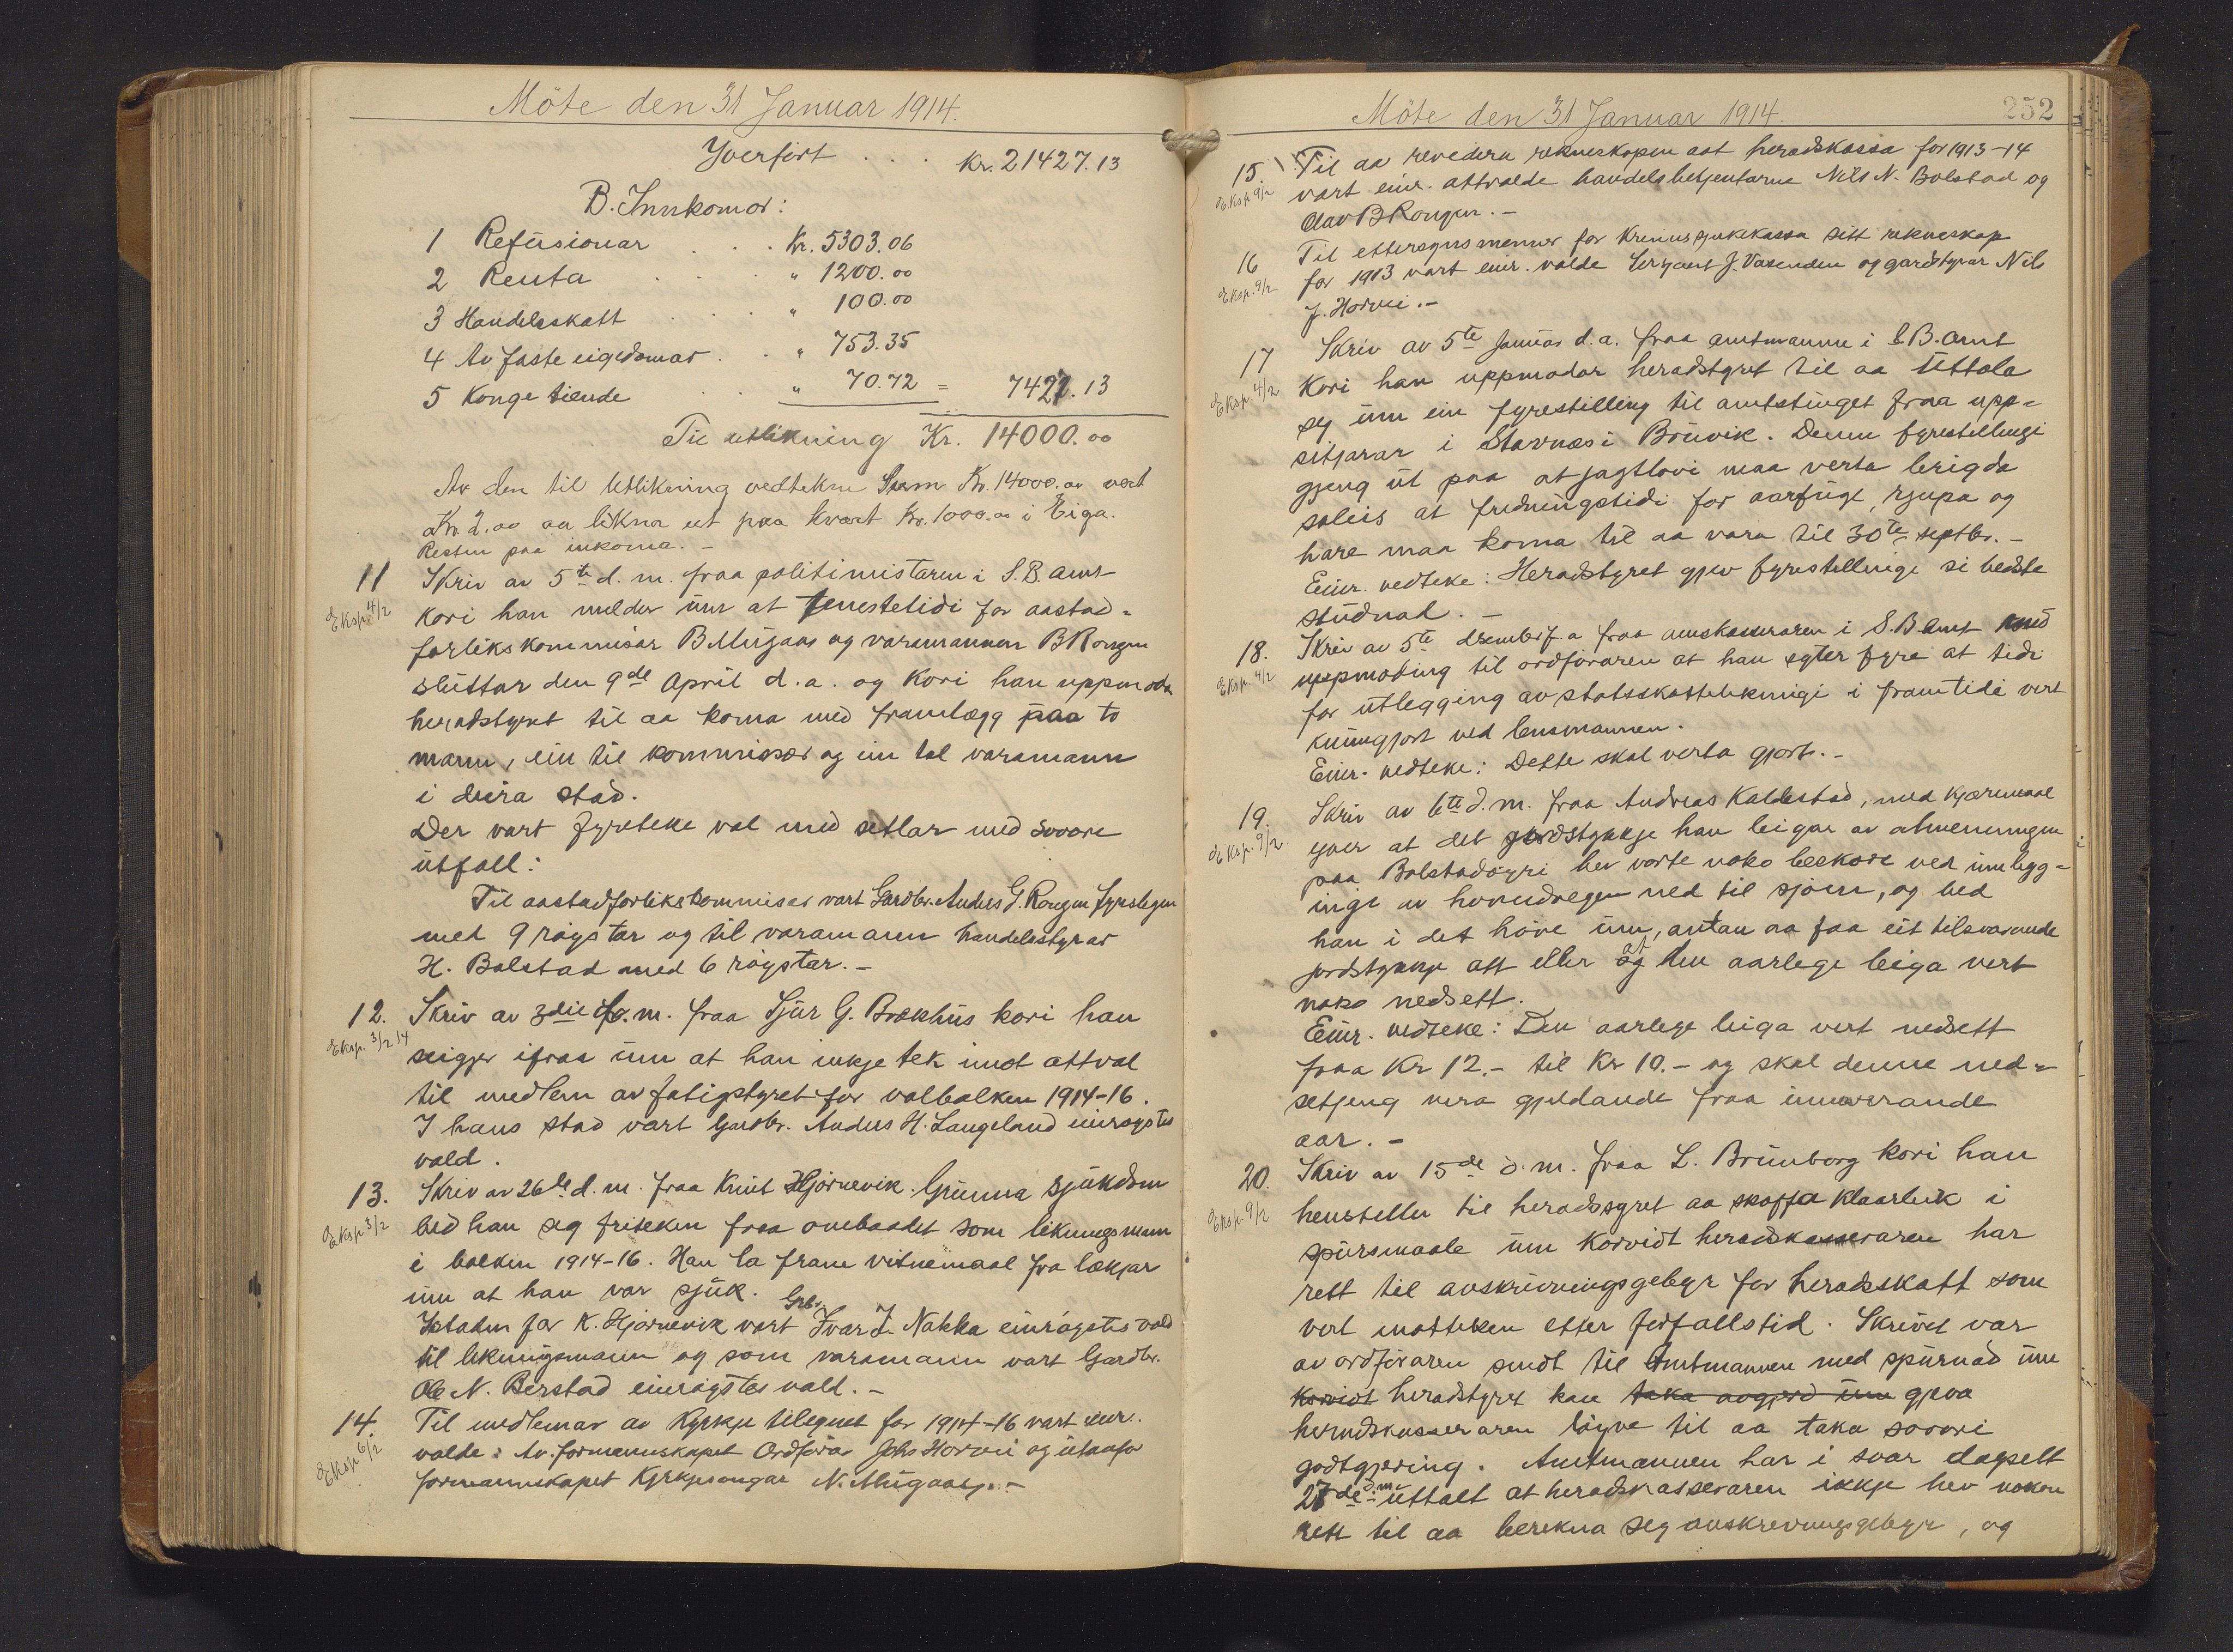 Möte den 31 Januar 1914.
Yverfört . . . Kr. 21427.13
B. Innkomor:
1 Refusionar . . . Kr. 5303.06
2 Renta . . . " 1200.00
3 Handelsskatt . . . " 100.00
4 Av faste eigedomar . . " 753.35
5 Konge tiende . . " 70.72 = 7427.13
Til utlikning Kr. 14000.00
Av den til utlikning vedtekne Sum Kr. 14000.00 vert
Kr. 2.00 aa likna ut paa kvart Kr. 1000.00 i Eiga.
Resten paa inkoma. –
11 Skriv av 5te d. m. fraa politimistaren i S. B. amt
Eksp. 4/2 kori han melder um at tenestetidi for aastad-
forlikskommisær B Mugaas og varamannen B Rongen
sluttar den 9de April d. a. og kori han uppmodar
heradstyret til aa koma med framlegg paa to
mann, ein til kommissær og ein til varamann
i deira stad.
Der vart fyreteke val med setlar med sovore
utfall:
Til aastadforlikskommisær vart Gardbr. Anders G. Rongen fyreslegen
med 9 røystar og til varamann handelsstyrar
H. Bolstad med 6 røystar. –
12. Skriv av 3die f. m. fraa Sjur G. Brækhus kori han
Eksp. 3/2 14 seigjer ifraa um at han inkje tek imot attval
til medlem av fatigstyret for valbolken 1914-16.
I hans stad vart Gardbr. Anders H. Langeland einrøystes
vald.
13. Skriv av 26de d. m. fraa Knut Hjørnevik. Grunna sjukdom
Eksp 3/2 bed han seg friteken fraa ombaadet som likningsmann
i bolken 1914-16. Han la fram vitnemaal fra lækjar
um at han var sjuk.
Gbr.
Istaden for K. Hjørnevik vart Ivar L. Nakka einrøystes vald
til likningsmann og som varamann vart Gardbr.
Ole N. Berstad einrøystes vald. –
14. Til medlemar av Kyrkje tilsynet for 1914-16 vart einr.
Eksp 6/2 valde: Av formannskapet Ordförar Johs Horvei og utanfor
formannskapet Kyrkjesongar N. Mugaas. –
Möte den 31 Januar 1914.
252
15. Til aa revedera rekneskapen aat heradskassa for 1913-14
Eksp 9/2 vart einr. attvalde handelsbetjentarne Nils N. Bolstad og
Olav B Rongen. –
16 Til ettersynsmenner for Krinssjukekassa sitt rekneskap
Eksp. 9/2 for 1913 vart einr. valde Serjant J. Vasenden og gardstyrar Nils
J. Horvei. –
17 Skriv av 5te Januar d. a. fraa amtmannen i S. B. amt
Eksp. 4/2 Kori han uppmodar heradstyret til aa uttala
seg um ein fyrestilling til amtstinget fraa upp-
sitjarar i Stavnes i Bruvik. Denne fyrestellingi
gjeng ut paa at jagtlovi maa verta brigda
soleis at fredningstidi for aarfugl, rjupa og
hare maa koma til aa vara til 30te septbr. –
Einr. vedteke: Heradstyret gjev fyrestellingi si bedste
studnad. –
18. Skriv av 5te desember f. a fraa amtskasseraren i S. B amt med
Eksp. 4/2 uppmoding til ordföraren at han syter fyre at tidi
for utlegging av statsskattelikningi i framtidi vert
kunngjort ved lensmannen.
Einr. vedteke: Dette skal verta gjort. –
19. Skriv av 6te d. m. fraa Andreas Kaldestad, med kjæremaal
Eksp. 9/2. yver at det jordstykkje han leigar av almenningen
paa Bolstadøyri hev vorte noko beskore ved umlegg-
ingi av hovudvegen ned til sjøen, og bed
han i det høve um, antan aa faa eit tilsvarande
jordstykkje att eller at den aarlege leiga vert
noko nedsett.
Einr. vedteke: Den aarlege leiga vert nedsett
fraa Kr 12.- til Kr 10.- og skal denne ned-
setjing vera gjeldande fraa inneverande
aar. –
20. Skriv av 15de d. m. fraa L. Brunborg kori han
Eksp. 9/2 henstiller til heradsyret aa skaffa klaarleik i
spursmaale um korvidt heradskasseraren har
rett til avskrivningsgebyr for heradsskatt som
vert motteken etter forfallstid. Skrivet var
av ordföraren sendt til Amtmannen med spurnad um
korvidt heradstyret kan taka avgjerd um gjeva
heradskasseraren løyve til aa taka sovori
godtgjering. Amtmannen har i svar dagsett
27de d. m. uttalt at heradskasseraren ikkje hev nokon
rett til aa berekna seg avskrivningsgebyr, og